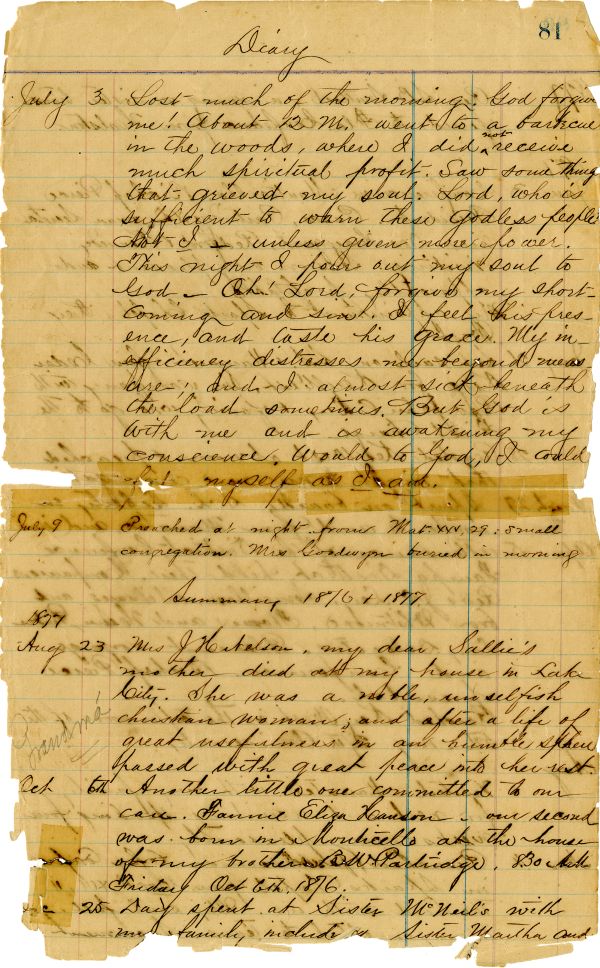 81
Diary
July 3 Lost much of the morning: God forgive
me! About 12 M. went to a barbecue
in the woods, where I did not receive
much spiritual profit. Saw some thing
that grieved my soul. Lord, who is
sufficient to warn these Godless people
Not I — unless given more power.
This night I pour out my soul to
God — Oh! Lord, forgive my short-
coming and sin. I feel his pres-
ence, and taste his grace. My in-
efficiency distresses me beyond meas-
ure; and I almost sick beneath
the load sometimes. But God is
with me and is awakening my
conscience. Would to God, I could
myself as I am.
July 9 Preached at night from Mat. XXV, 29: small
congregation. Mrs Goodwyn buried in morning
Summary 1876 & 1877
1877
Aug 23 Mrs J my dear Sallie's
mother died at my house in Lake
City. She was a noble, unselfish
christian woman; and after a life of
great usefulness in an humble sphere
passed with great peace into her rest.
Grandma
Oct 6th Another little one committed to our
care. Fannie Eliza Hanson — our second
was born in Monticello at the house
of my brother B.W. Partridge. 8.30 A.M.
Friday Oct 6th, 1876.
25 Day spent at Sister McNeil's with
my family, include's Sister Martha and